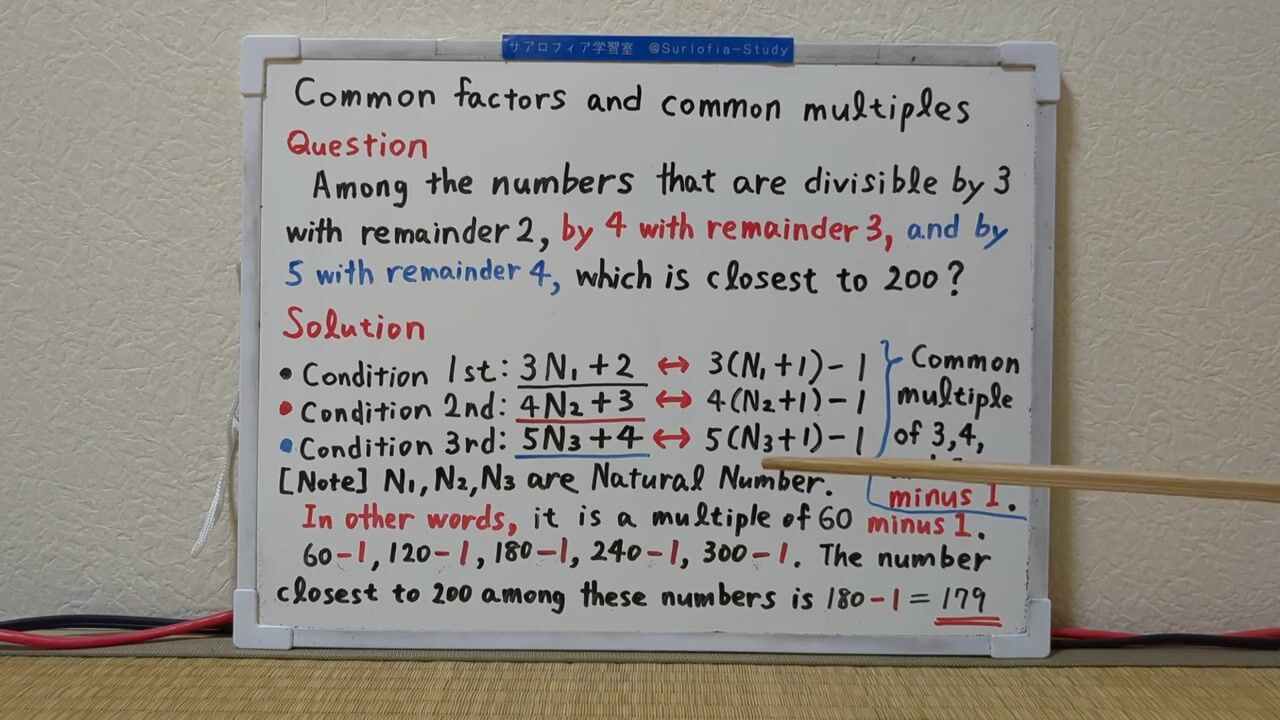 サアロフィア学習室 @Surlofia-Study
Common factors and common multiples
Question
Among the numbers that are divisible by 3
with remainder 2, by 4 with remainder 3, and by
5 with remainder 4, which is closest to 200?
Solution
• Condition 1st: 3N₁+2 ↔ 3(N₁+1)-1
• Condition 2nd: 4N₂+3 ↔ 4(N₂+1)-1
• Condition 3rd: 5N₃+4 ↔ 5(N₃+1)-1
Common
multiple
of 3,4,
minus 1.
[Note] N₁, N₂, N₃ are Natural Number.
In other words, it is a multiple of 60 minus 1.
60-1, 120-1, 180-1, 240-1, 300-1. The number
closest to 200 among these numbers is 180-1=179